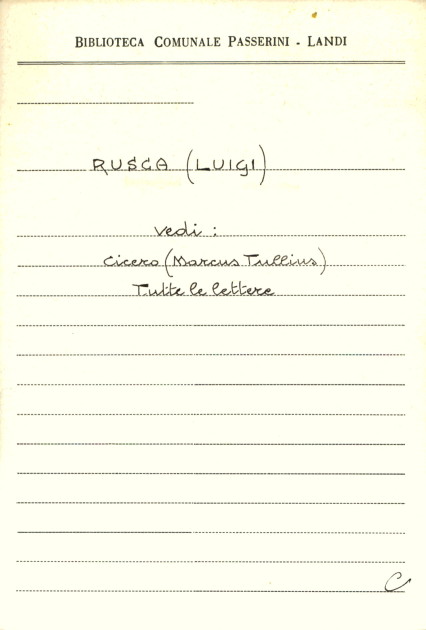 BIBLIOTECA COMUNALE PASSERINI - LANDI
RUSCA (LUIGI)
vedi :
Cicero (Marcus Tullius)
Tutte le lettere
C